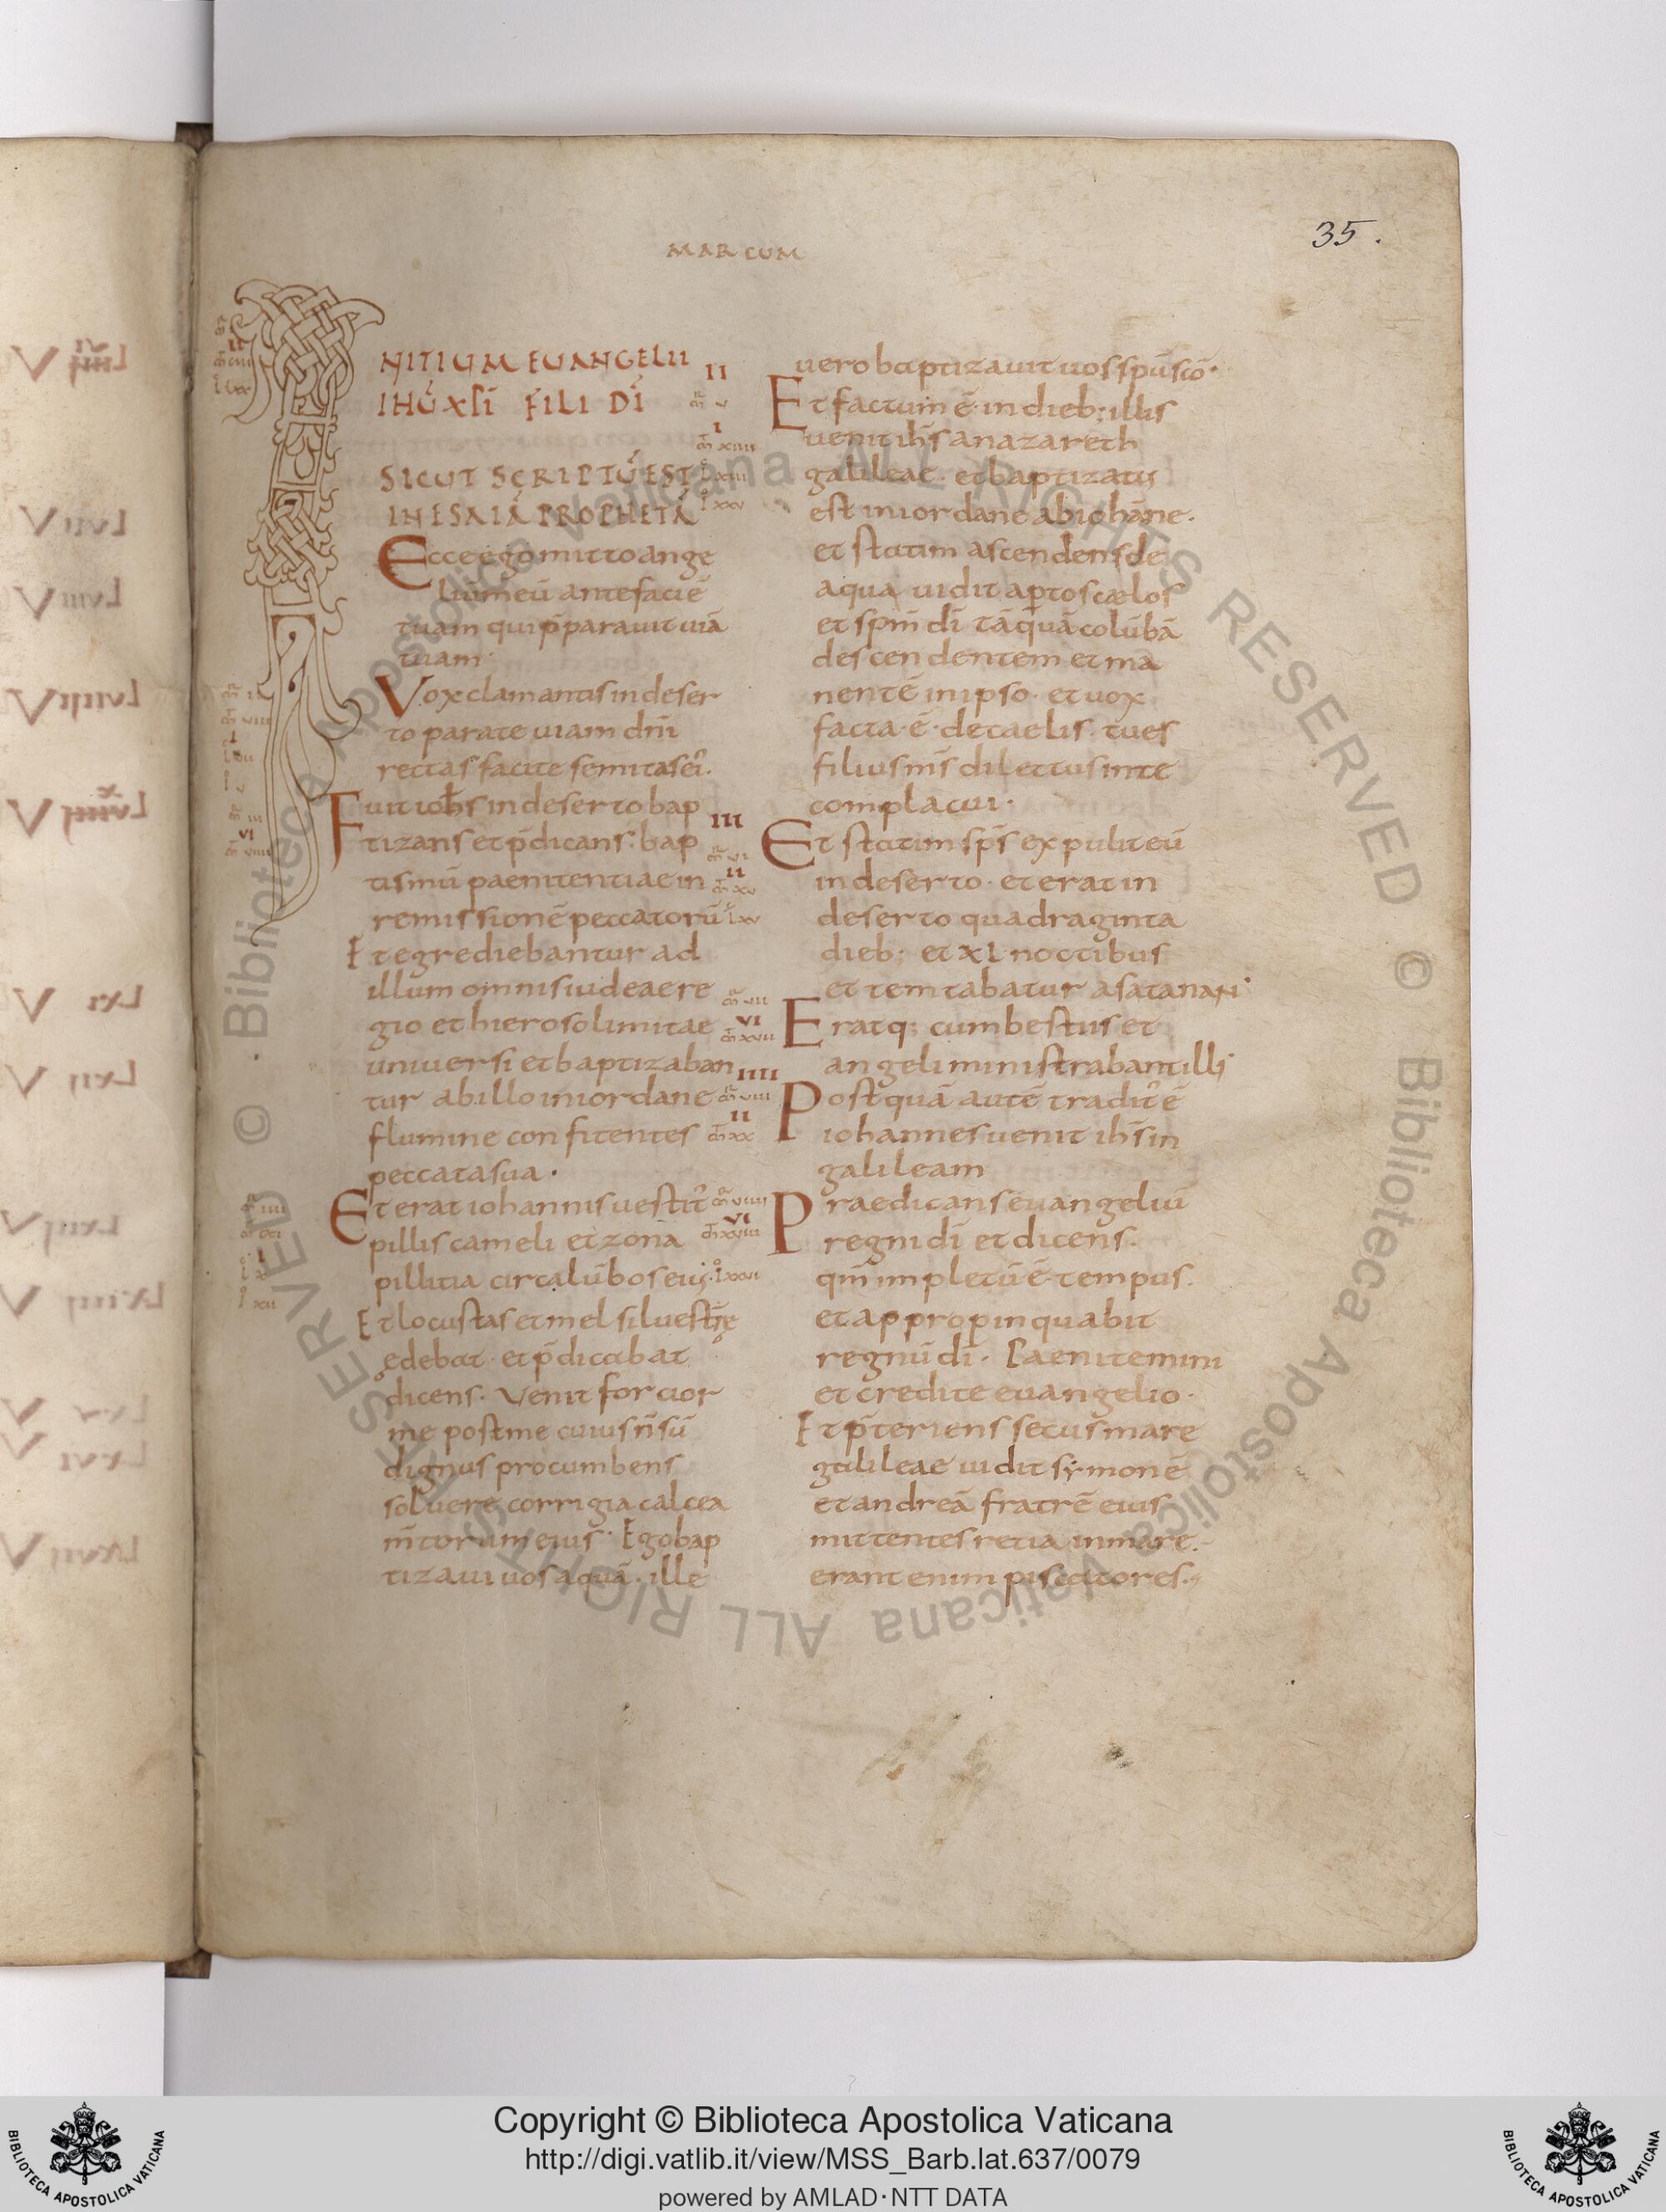 35.
MARCUM
INITIUM EUANGELII
IHŪ XPĪ FILI DĪ
SICUT SCRIPTŪ EST
IN ESAIA PROPHETA
Ecce ego mitto ange
lum meū ante faciē
tuam qui p̄parauit uiā
tuam·
Vox clamantis in deser
to parate uiam dn̄i
rectas facite semitas ei᾽.
Fuit ioh̄s in deserto bap
tizans et p̄dicans. bap
tismū paenitentiae in
remissionē peccatorū
Et egrediebantur ad
illum omnis iudeae re
gio et hierosolimitae
uniuersi et baptizaban
tur ab illo in iordane
flumine confitentes
peccata sua·
Et erat iohannis uestit᾽
pillis cameli et zona
pillitia circa lūbos eius·
Et locustas et mel siluestrę
edebat· et p̄dicabat
dicens· Venit forcior
me post me cuius n̄ sū
dignus procumbens
soluere corrigia calcea
m̄torum eius· Ego bap
tizaui uos aquā· ille
uero baptizauit uos sp̄u sc̄o·
Et factum ē· in dieb; illis
uenit ih̄s a nazareth
galileae· et baptizatus
est in iordane ab iohāne·
et statim ascendens de
aqua uidit aptos cælos
et sp̄m dī tāquā colūbā
descendentem et ma
nentē in ipso· et uox
facta· ē· de caelis· tu es
filius m̄s dilectus in te
complacui·
Et statim sp̄s expulit eū
in deserto· et erat in
deserto quadraginta
dieb; et XL noctibus
et temtabatur a satanan·
Eratq; cum bestiis et
angeli ministrabant illi·
Postquā autē tradit᾽ ē
iohannes uenit ih̄s in
galileam
Praedicans euangeliū
regni dī et dicens·
qm̄ impletū ē· tempus·
et appropinquabit
regnū dī· Paenitemini
et credite euangelio·
Et p̄teriens secus mare
galileae uidit symonē
et andreā fratrē eius
mittentes retia in mare·
erant enim piscatores·
Copyright © Biblioteca Apostolica Vaticana
http://digi.vatlib.it/view/MSS_Barb.lat.637/0079
powered by AMLAD·NTT DATA
BIBLIOTECA APOSTOLICA VATICANA
BIBLIOTECA APOSTOLICA VATICANA
© Biblioteca Apostolica Vaticana ALL RIGHTS RESERVED
© Biblioteca Apostolica Vaticana ALL RIGHTS RESERVED